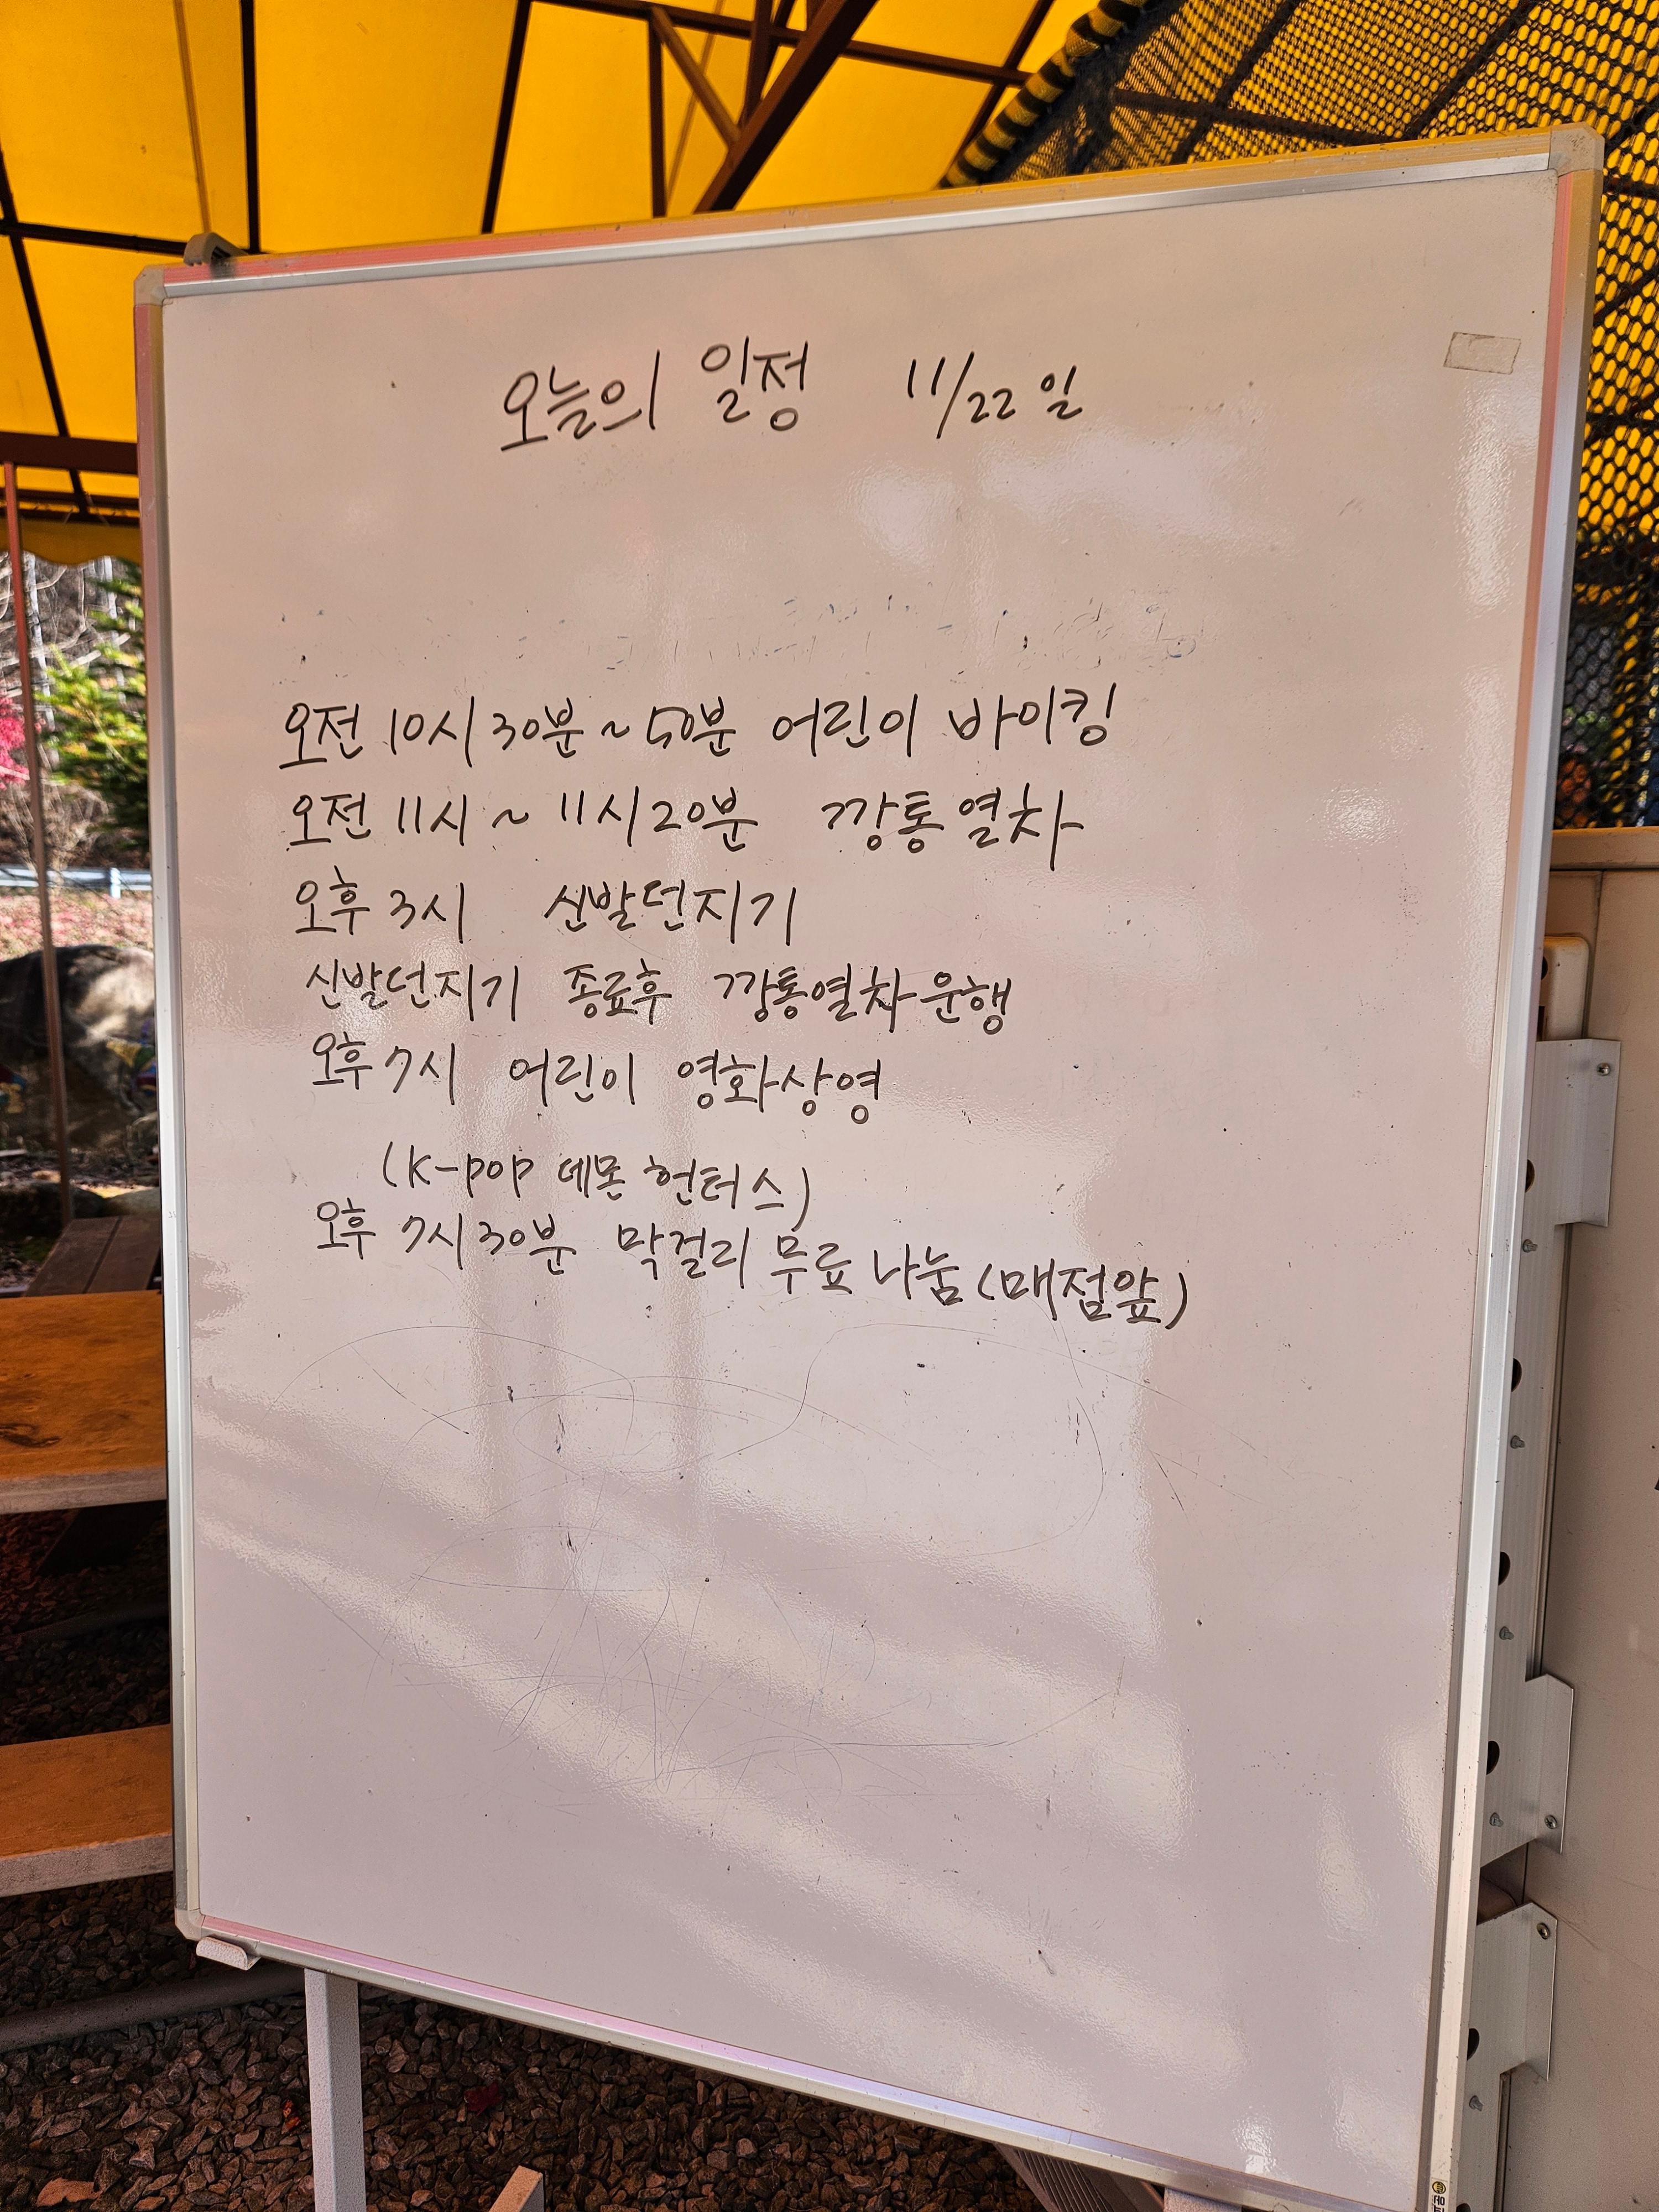 오늘의 일정 11/22일
오전 10시 30분~50분 어린이 바이킹
오전 11시 ~ 11시 20분 깡통열차
오후 3시 신발던지기
신발던지기 종료후 깡통열차운행
오후 7시 어린이 영화상영
(K-pop 데몬 헌터스)
오후 7시30분 막걸리 무료 나눔(매점앞)